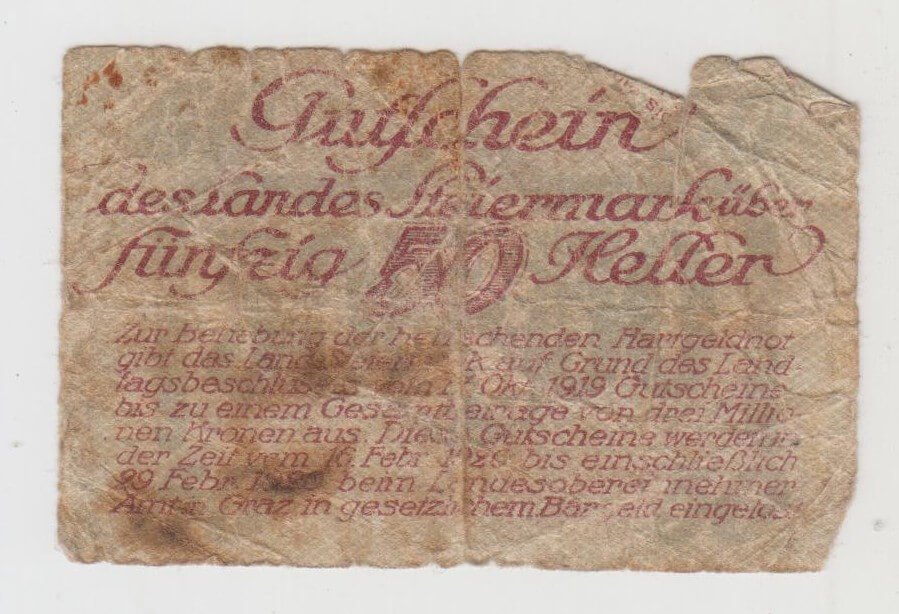 Gutschein
des Landes Steiermark über
fünfzig 50 Heller
Zur Behebung der herrschenden Hartgeldnot
gibt das Land Steiermark auf Grund des Land-
tagsbeschlusses vom Okt. 1919 Gutscheine
bis zu einem Gesamtbetrage von drei Millio-
nen Kronen aus. Diese Gutscheine werden in
der Zeit vom 16. Febr. 1920 bis einschließlich
29. Febr. 1920 beim Landesobereinnehmer-
Amt in Graz in gesetzlichem Bargeld eingelöst.